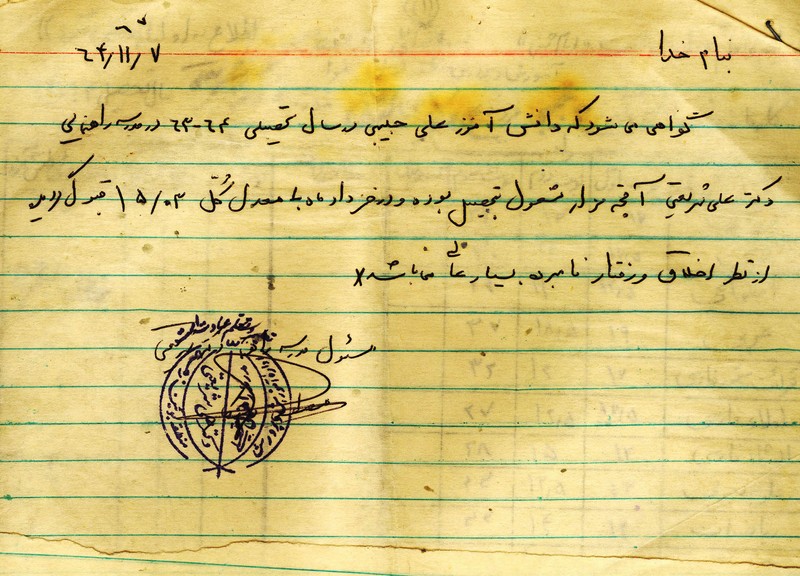 بنام خدا
۶۴/۱۱/۷
گواهی می شود که دانش آموز علی حبیبی در سال تحصیلی ۶۴-۶۳ در مدرسه راهنمایی
دکتر علی شریعتی آقچه مزار مشغول بتحصیل بوده و در خرداد ماه با معدل کل ۱۵/۰۳ قبول گردید
از نظر اخلاق و رفتار نامبرده بسیار عالی می باشد
مسئول مدرسه